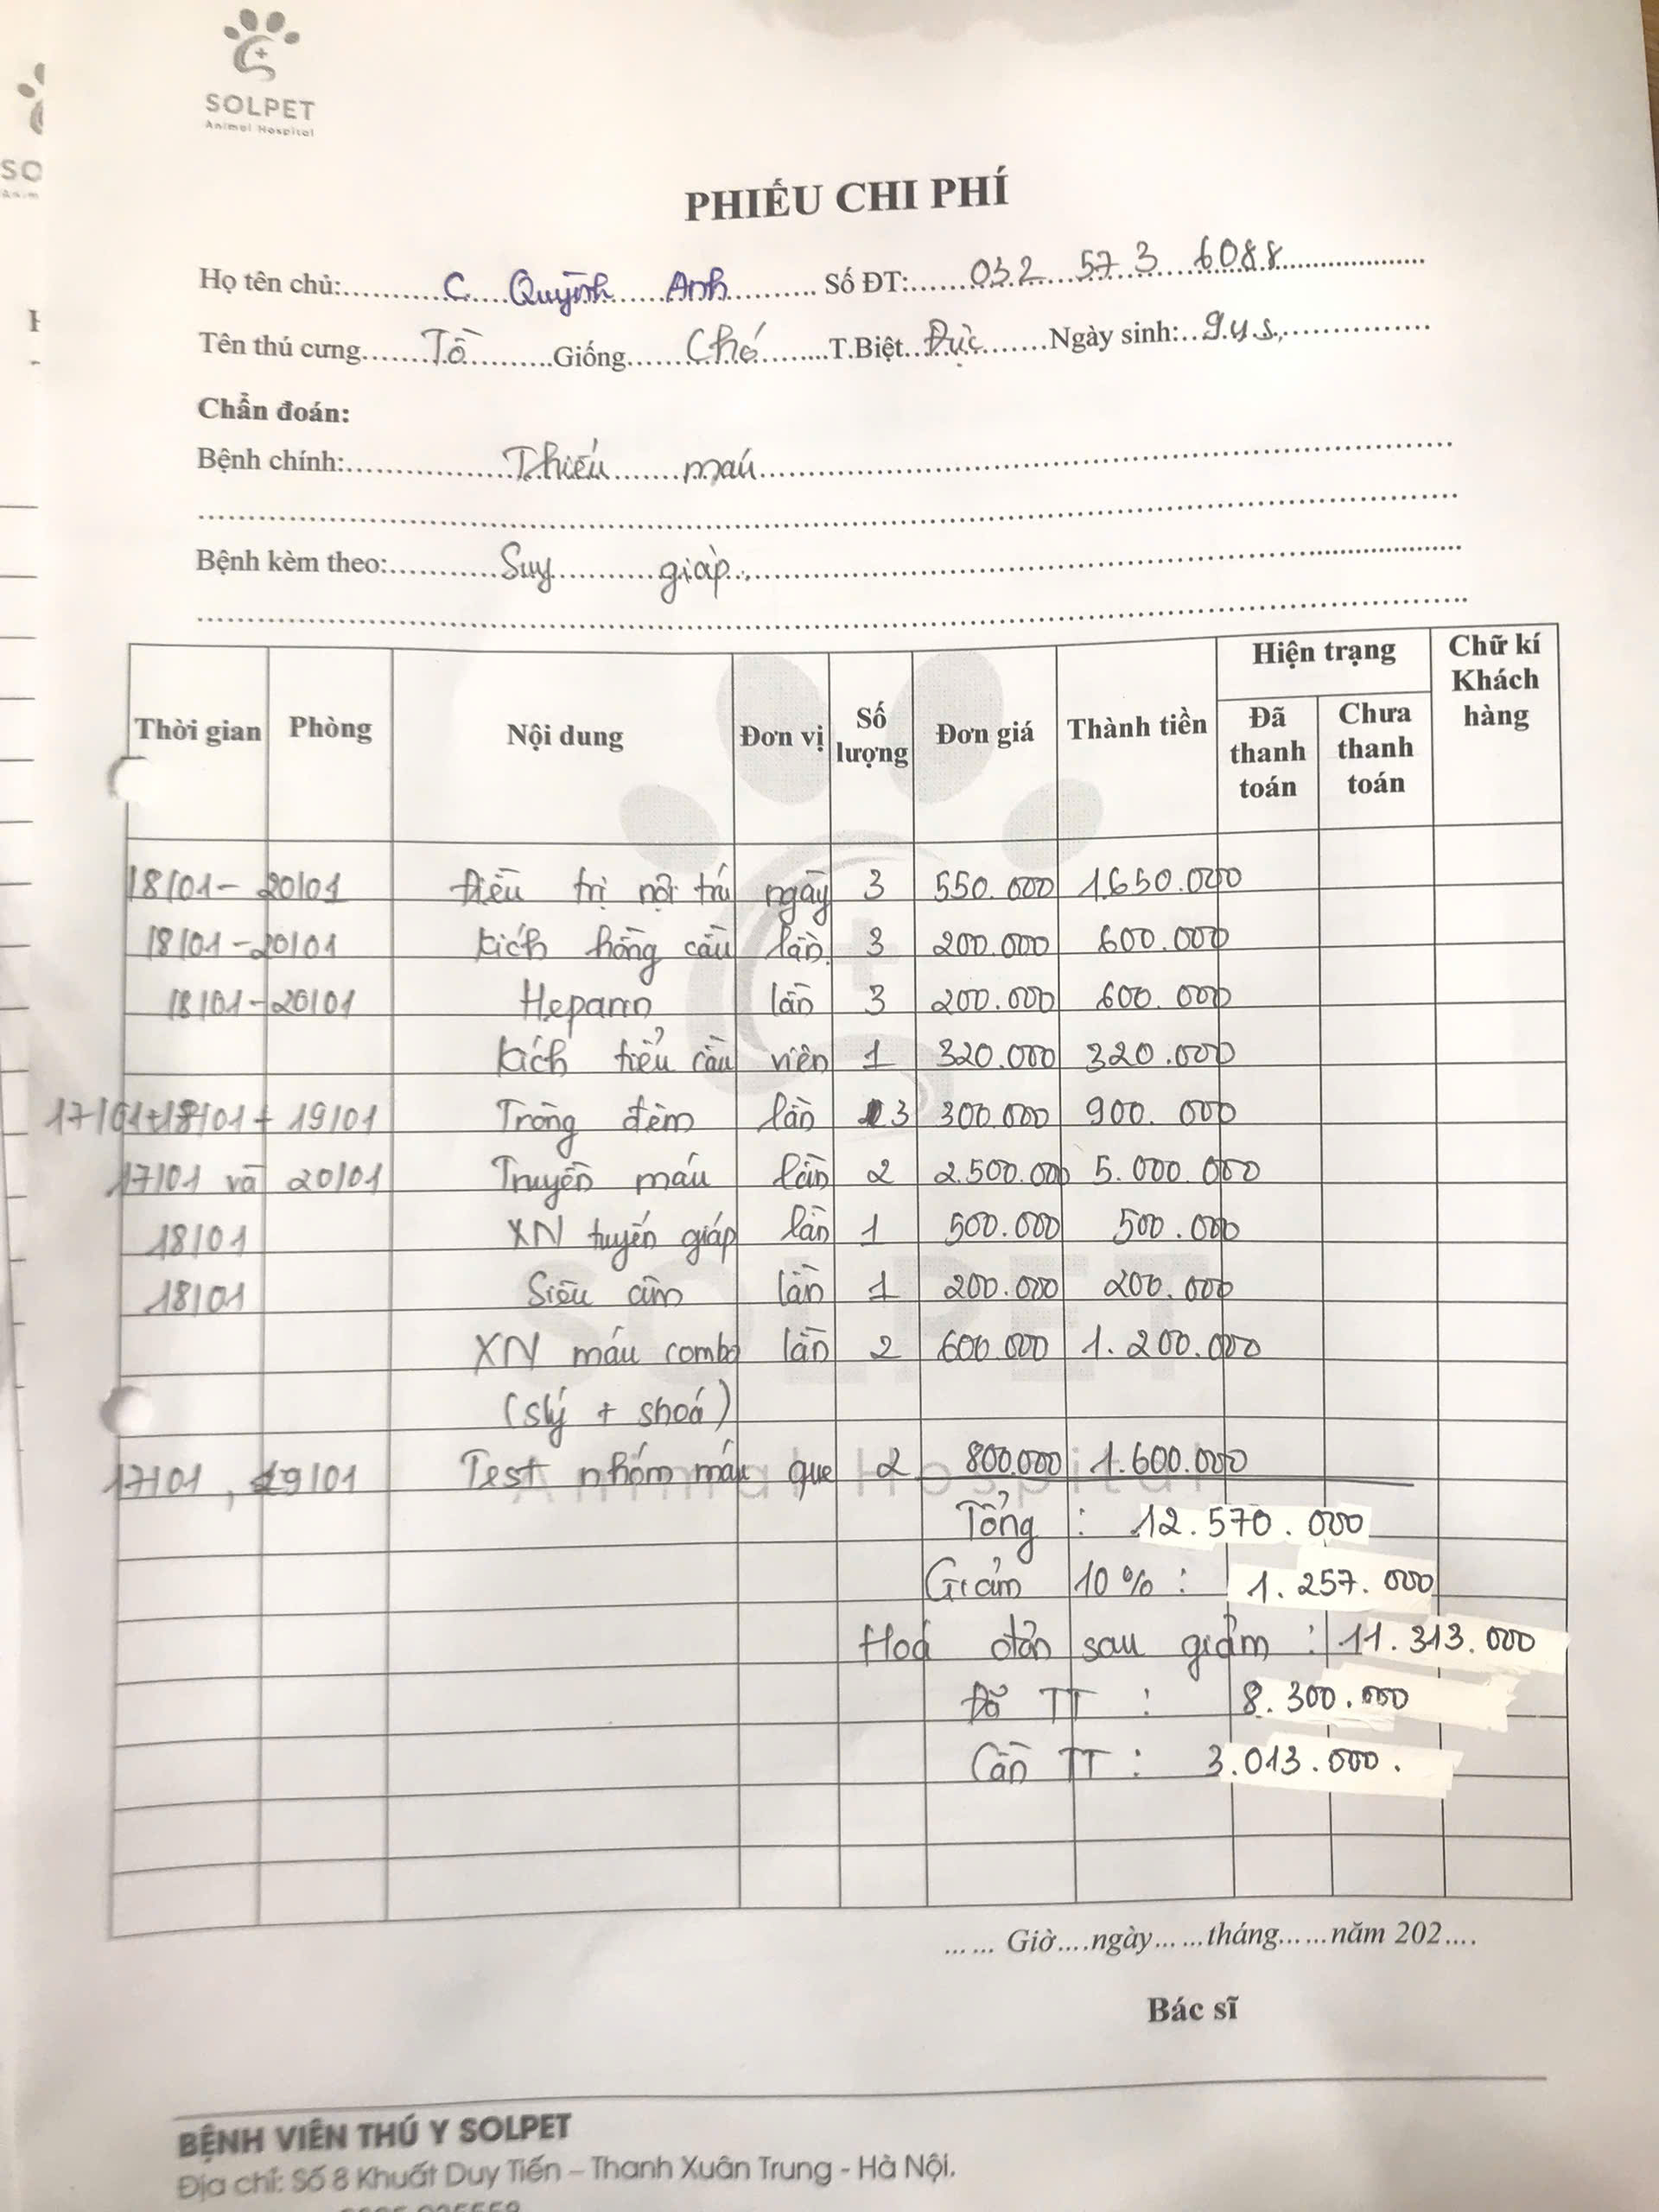 SOLPET
Animal Hospital
PHIẾU CHI PHÍ
Họ tên chủ: C. Quỳnh Anh Số ĐT: 032 573 6088
Tên thú cưng Tồ Giống Chó T.Biệt Đực Ngày sinh: 9.y.s.
Chẩn đoán:
Bệnh chính: Thiếu máu
Bệnh kèm theo: Suy giáp
Thời gian Phòng Nội dung Đơn vị Số lượng Đơn giá Thành tiền Hiện trạng Đã thanh toán Chưa thanh toán Chữ kí Khách hàng
18/01 - 20/01 Điều trị nội trú ngày 3 550.000 1.650.000
18/01 - 20/01 Kích hồng cầu lần 3 200.000 600.000
18/01 - 20/01 Heparin lần 3 200.000 600.000
Kích tiểu cầu viên 1 320.000 320.000
17/01+18/01+ 19/01 Trông đêm lần 3 300.000 900.000
17/01 và 20/01 Truyền máu lần 2 2.500.000 5.000.000
18/01 XN tuyến giáp lần 1 500.000 500.000
18/01 Siêu âm lần 1 200.000 200.000
XN máu combo lần 2 600.000 1.200.000
(slý + shoá)
17/01, 19/01 Test nhóm máu que 2 800.000 1.600.000
Tổng : 12.570.000
Giảm 10% : 1.257.000
Hoá đơn sau giảm : 11.313.000
Đã TT : 8.300.000
Cần TT : 3.013.000.
...... Giờ....ngày......tháng......năm 202....
Bác sĩ
BỆNH VIÊN THÚ Y SOLPET
Địa chỉ: Số 8 Khuất Duy Tiến – Thanh Xuân Trung - Hà Nội.